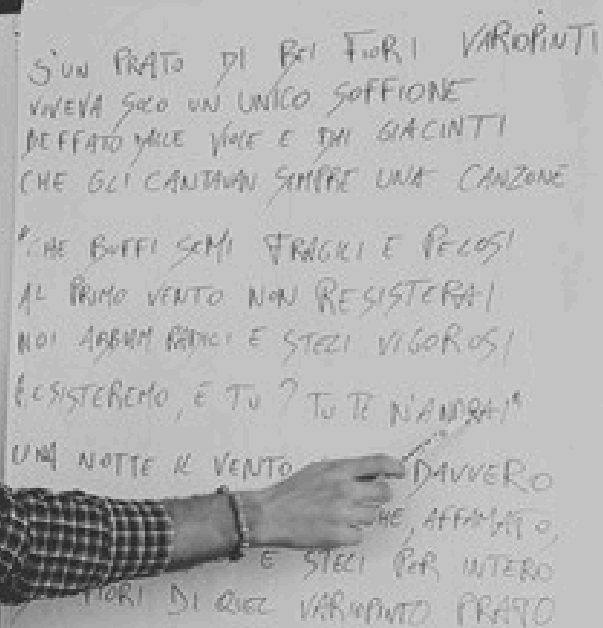 S'UN PRATO DI BEI FIORI VARIOPINTI
VIVEVA SOLO UN UNICO SOFFIONE
BEFFATO DALLE VIOLE E DAI GIACINTI
CHE GLI CANTAVAN SEMPRE UNA CANZONE
"CHE BUFFI SEMI FRAGILI E PELOSI
AL PRIMO VENTO NON RESISTERAI
NOI ABBIAM RADICI E STELI VIGOROSI
RESISTEREMO, E TU? TU TE N'ANDRAI"
UNA NOTTE IL VENTO DAVVERO
CHE, AFFAMATO,
E STELI PER INTERO
FIORI DI QUEL VARIOPINTO PRATO